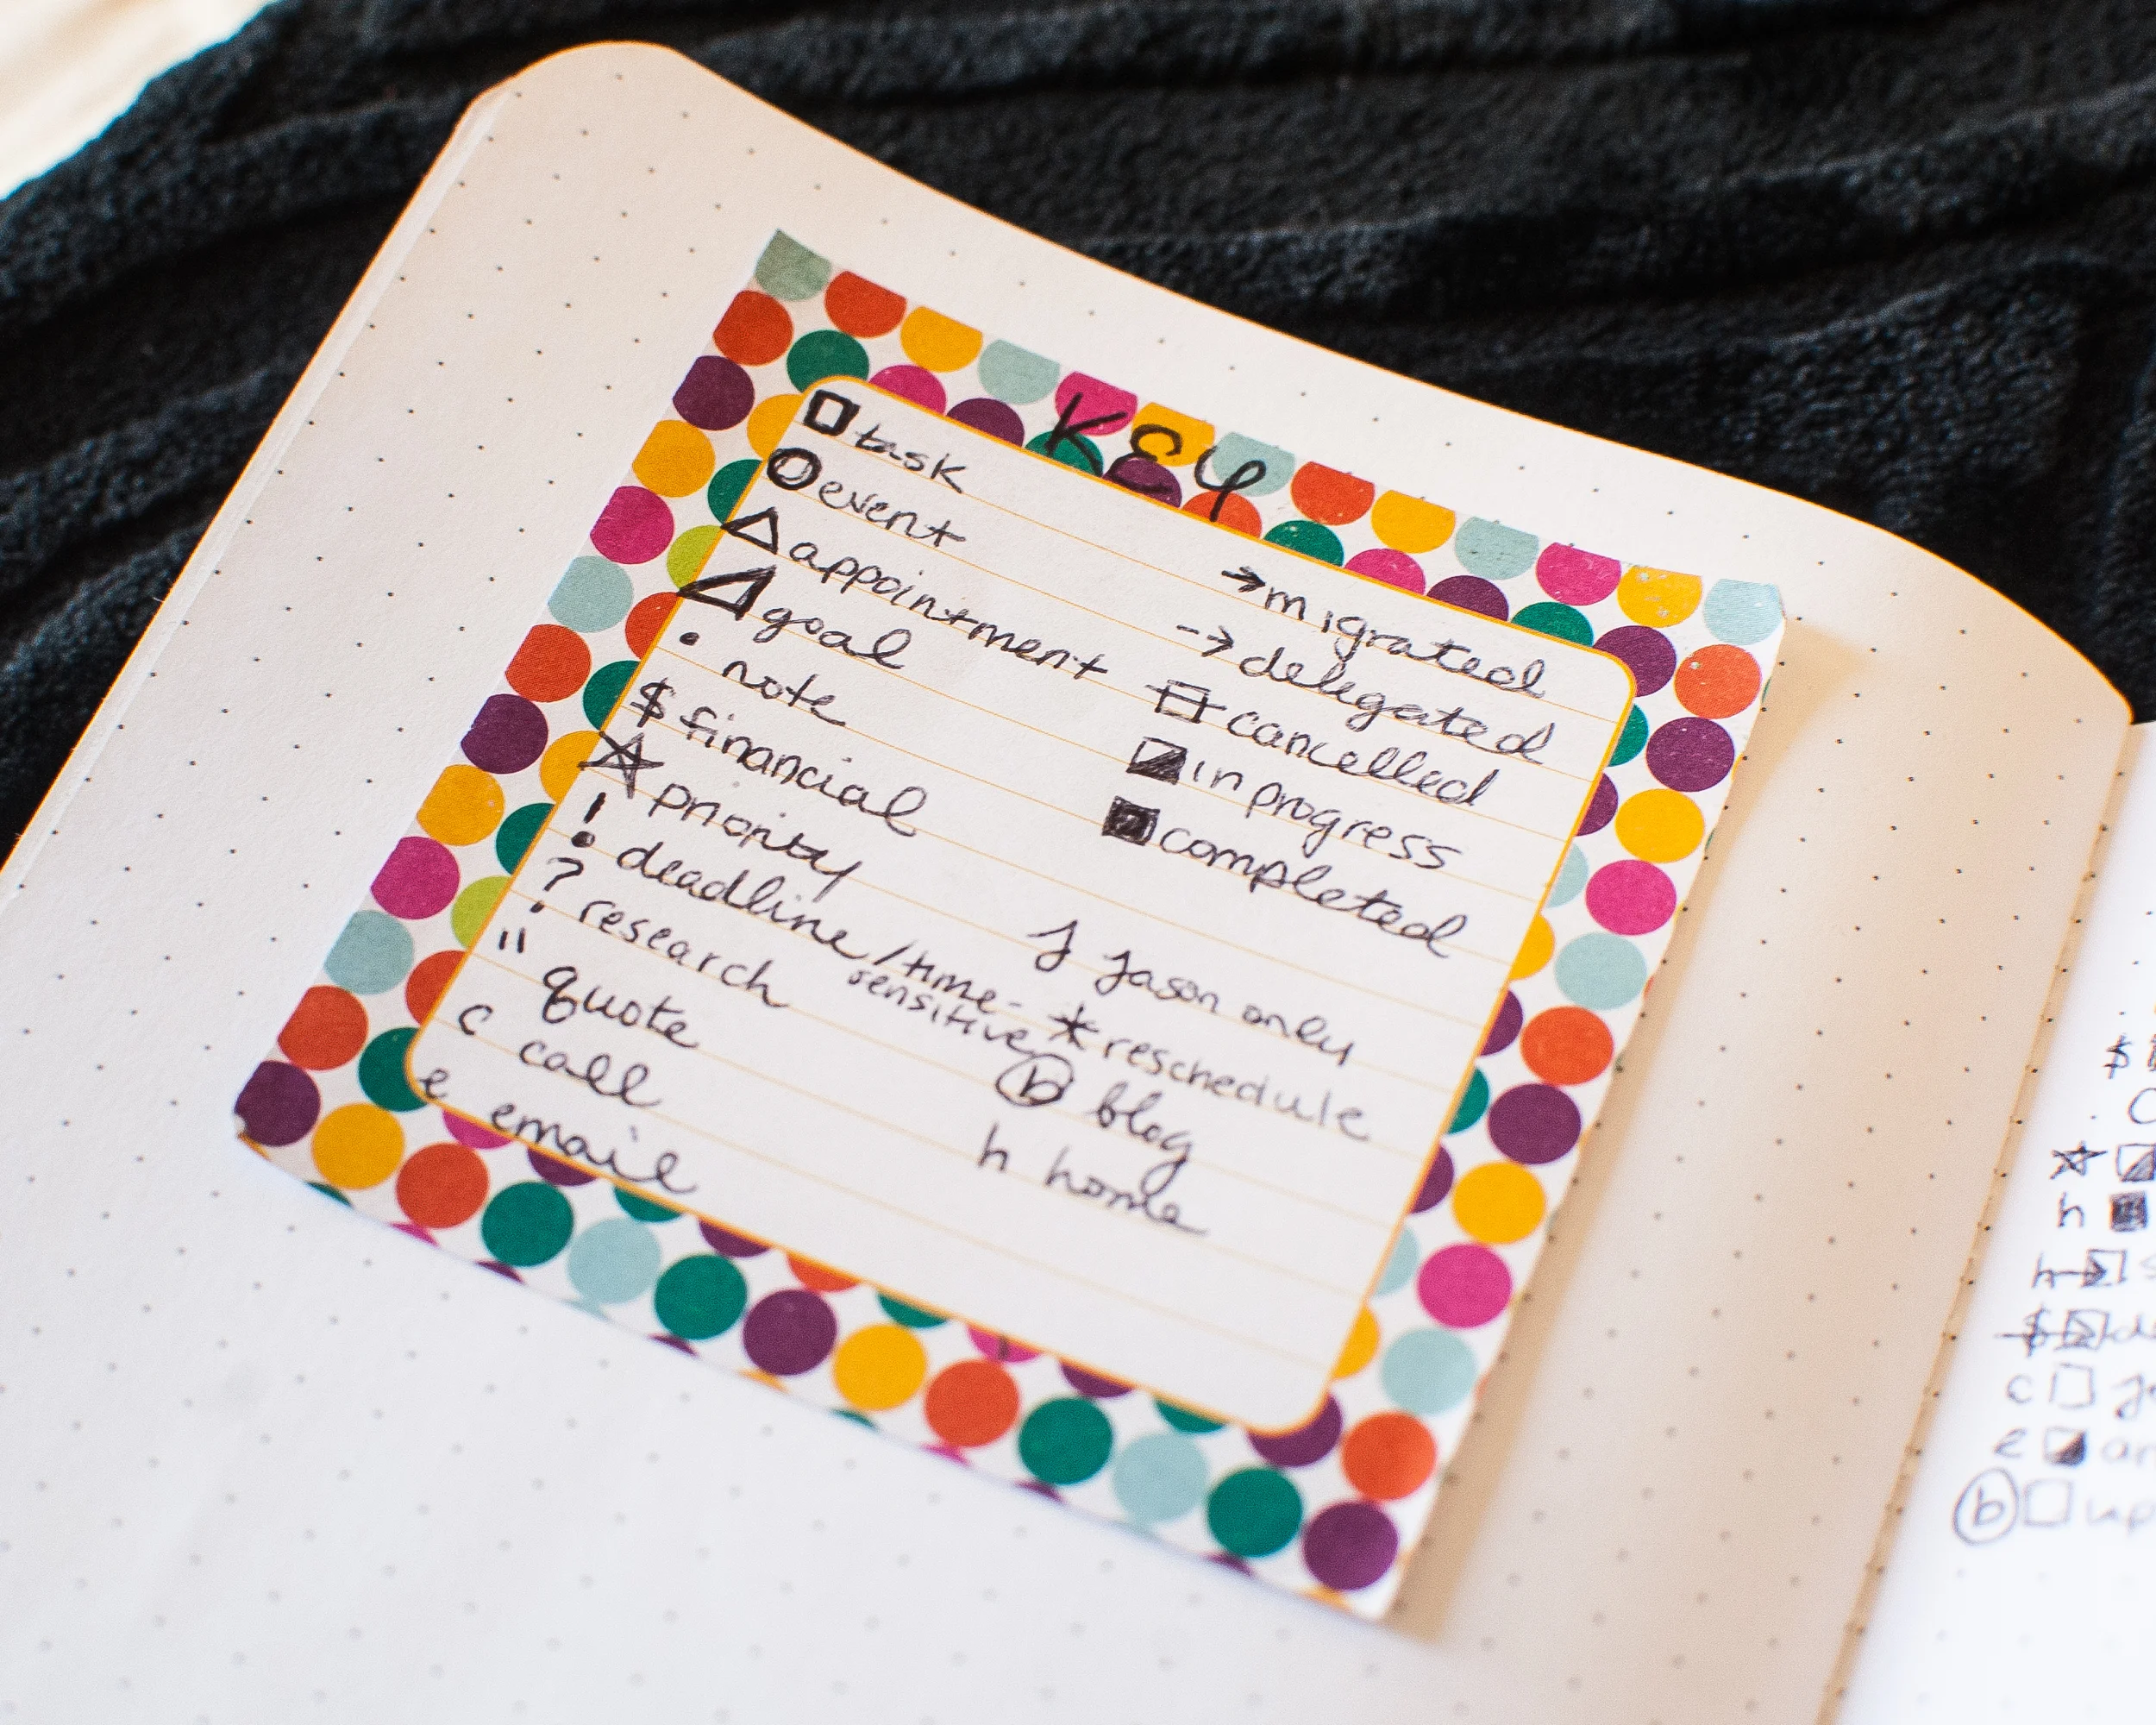 KEY
□ task
○ event
△ appointment
◿ goal
• note
$ financial
☆ priority
! deadline/time-
sensitive
? research
" quote
c call
e email
→ migrated
--> delegated
cancelled
◪ in progress
■ completed
J Jason only
* reschedule
ⓑ blog
h home
$
☆
h
$
c
e
ⓑ □ up